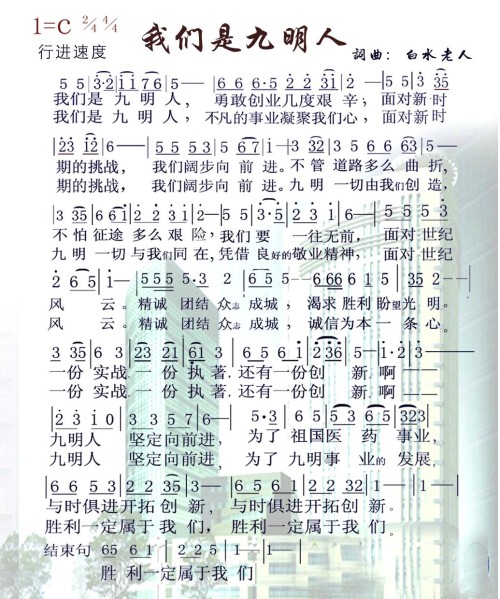 1=C 2/4 4/4
我们是九明人
行进速度
詞曲：白水老人
5 5 3·2 1 1 7 6 5— 6 6 6·5 2 2 3 1 2 — 5 5 3 35
我们是 九 明 人， 勇敢创业几度艰 辛；面对新时
我们是 九 明 人， 不凡的事业凝聚我们心，面对新时
23 12 6— 5 5 5 3 5 67 1 — 3 32 3 5 6 6 63 5—
期的挑战， 我们阔步向 前 进。不 管 道路多么 曲 折，
期的挑战， 我们阔步向 前 进。九 明 一切由我们 创 造，
3 35 6 61 2 2 3 1 2— 5 5 3·5 2 3 1 6— 5 5 5 3
不 怕 征途 多么 艰 险；我们 要 一往无前， 面对 世纪
九 明 一切 与我们 同 在，凭借 良好的 敬业精神， 面对 世纪
2 6 5 1— 555 5·3 2 6 5 5— 6 66 6 1 5 35 2—
风 云。精诚 团结 众志 成城；渴求 胜利 盼望 光 明。
风 云。精诚 团结 众志 成城，诚信 为本 一 条 心。
3 35 6 3 23 21 61 3 6 5 6 1 2 36 5— 1·2 3—
一份 实战 一 份 执 著，还有一份创 新，啊 ——
一份 实战 一 份 执 著，还有一份创 新，啊 ——
2 3 1 0 3 3 5 7 6— 5·3 6 5 5 3 6 5 323
九明人 坚定向前进， 为了 祖国医 药 事业，
九明人 坚定向前进， 为了 九明事 业的 发展，
6 6 5 3 2 2 35 3— 6 6 5 1 3 2 2 5 1—
与时俱进开拓 创 新，与时俱进开拓 创 新。
胜利一定属于 我 们，胜利一定属于 我 们。
结束句 65 6 1 2 2 5 1— 1—
胜 利一定属于 我 们